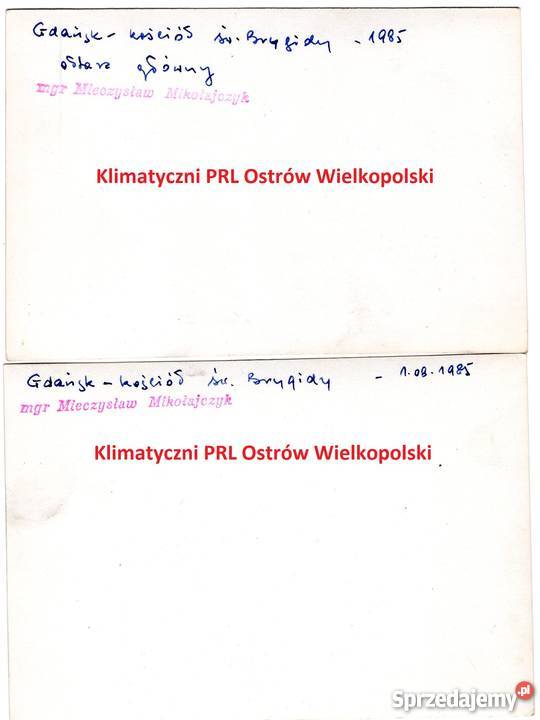 Gdańsk - kościół św. Brygidy - 1985
ołtarz główny
mgr Mieczysław Mikołajczyk
Klimatyczni PRL Ostrów Wielkopolski
Gdańsk - kościół św. Brygidy - 1.08.1985
mgr Mieczysław Mikołajczyk
Klimatyczni PRL Ostrów Wielkopolski
Sprzedajemy.pl